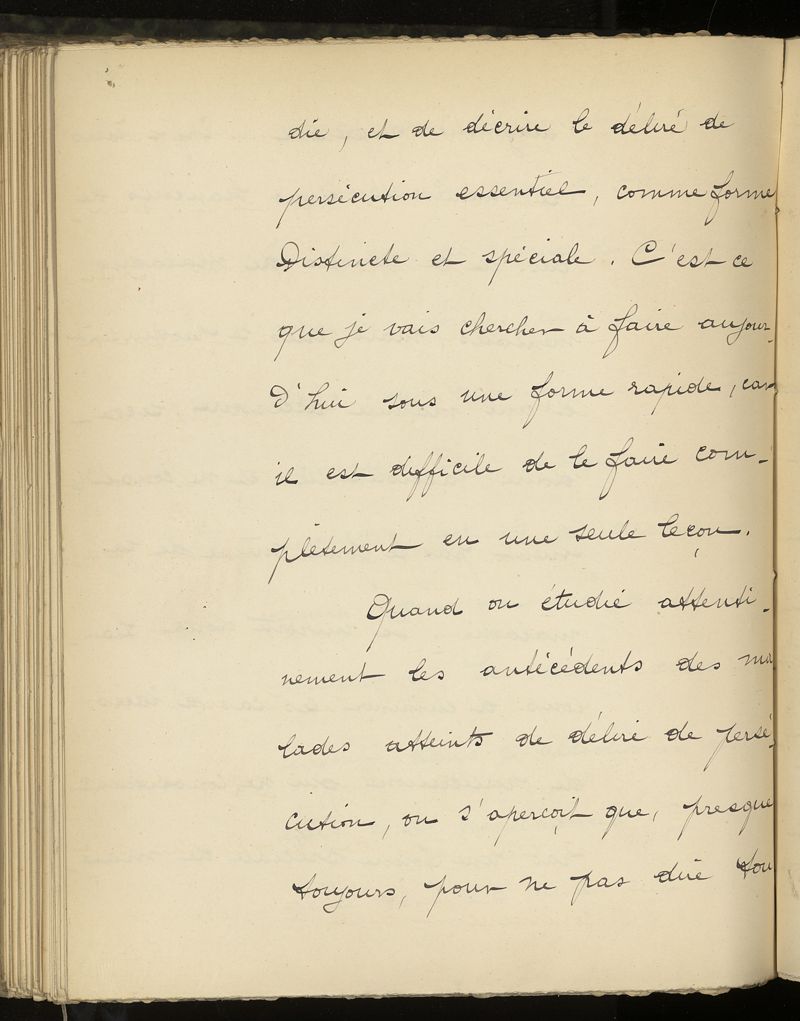 die, et de décrire le délire de
persécution essentiel, comme forme
Distincte et spéciale. C'est ce
que je vais chercher à faire aujour-
d'hui sous une forme rapide, car
il est difficile de le faire com-
plètement en une seule leçon.
Quand on étudie attenti-
vement les antécédents des ma
lades atteints de délire de persé-
cution, on s'aperçoit que, presque
toujours, pour ne pas dire tou